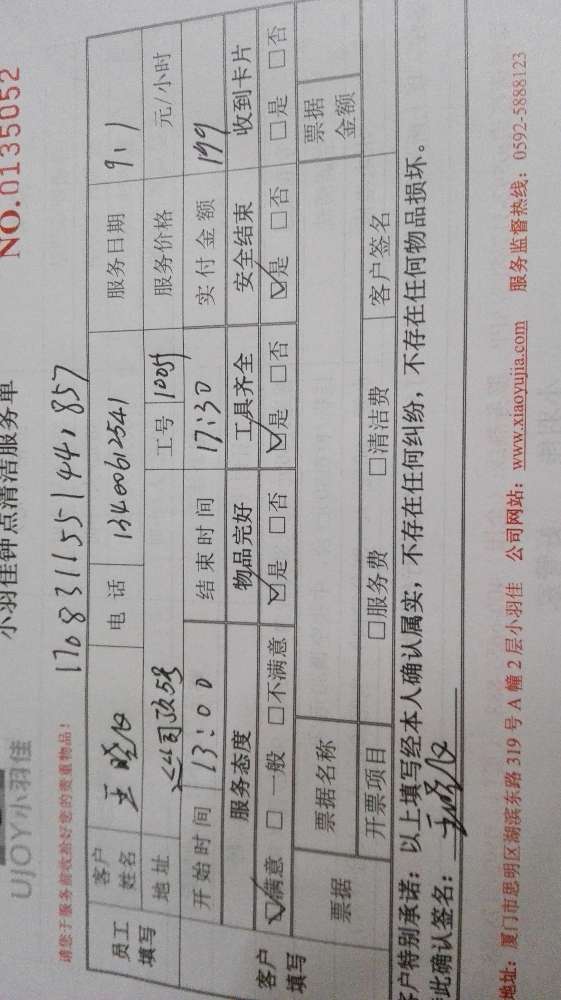 UJOY小羽佳
小羽佳钟点清洁服务单
NO.0135052
请您于服务前收拾好您的贵重物品！
170831155144857
员工填写 客户姓名 王晓 电话 13400612541 服务日期 9.1
地址 工号 服务价格 元/小时
开始时间 13:00 结束时间 17:30 实付金额 199
客户填写 服务态度 物品完好 工具齐全 安全结束 收到卡片
☑满意 □一般 □不满意 ☑是 □否 ☑是 □否 ☑是 □否 □是 □否
票据 票据名称 票据金额
开票项目 □服务费 □清洁费 客户签名
客户特别承诺：以上填写经本人确认属实，不存在任何纠纷，不存在任何物品损坏。
此确认签名：王晓
地址：厦门市思明区湖滨东路319号A幢2层小羽佳 公司网站：www.xiaoyujia.com 服务监督热线：0592-5888123